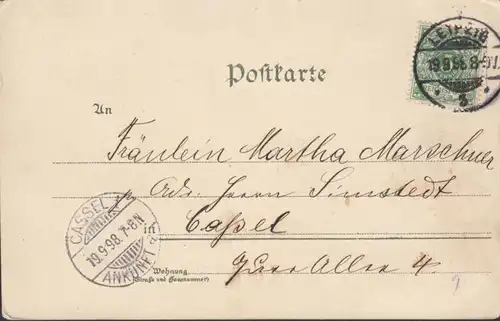 LEIPZIG
19.9.98.8-9
3
Postkarte
An
Fräulein Martha Marschner
Adr. Herrn Simstedt
in Cassel
CASSEL
19.9.98.7-8N
ANKUNFT
Wohnung
(Straße und Hausnummer)
Allee 4.